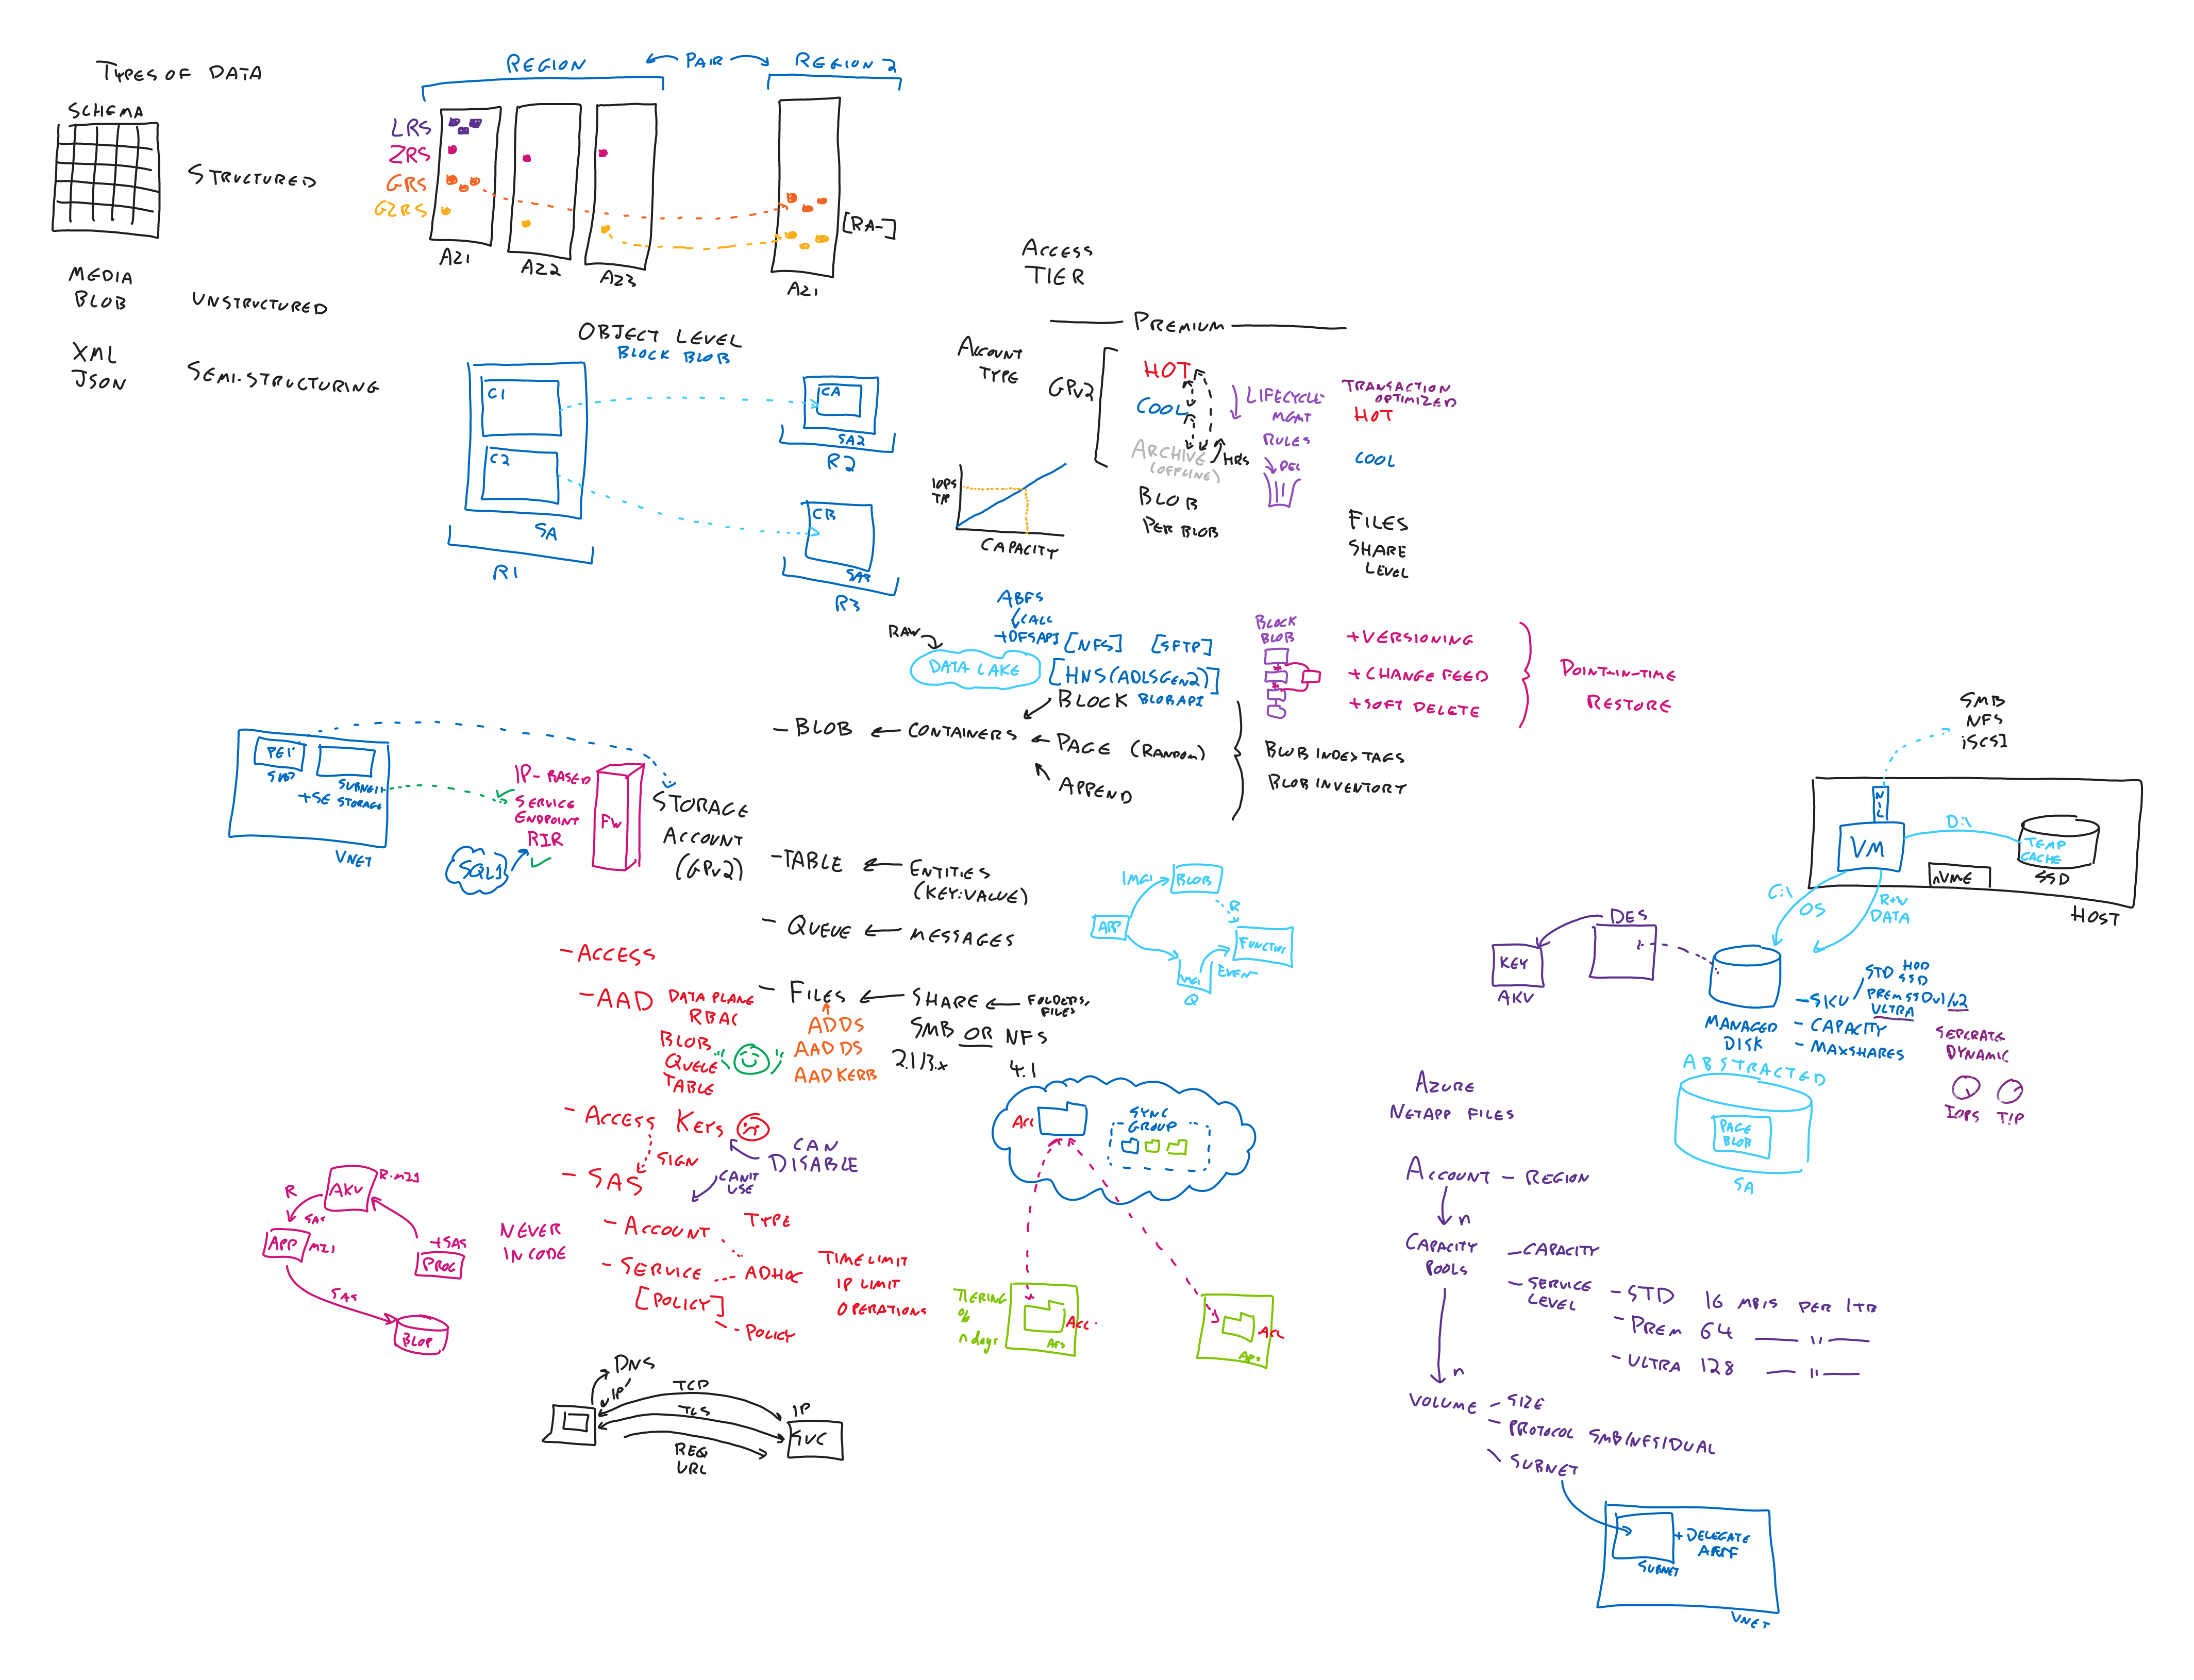 TYPES OF DATA
SCHEMA
STRUCTURED
MEDIA
BLOB
UNSTRUCTURED
XML
JSON
SEMI-STRUCTURING
REGION
PAIR
REGION 2
LRS
ZRS
GRS
GZRS
AZ1
AZ2
AZ3
[RA-]
AZ1
OBJECT LEVEL
BLOCK BLOB
C1
C2
SA
R1
CA
SA2
R2
CB
SA3
R3
ACCESS
TIER
PREMIUM
ACCOUNT
TYPE
GPv2
HOT
COOL
ARCHIVE
(OFFLINE)
HRS
BLOB
PER BLOB
LIFECYCLE
MGMT
RULES
DEL
TRANSACTION
OPTIMIZED
HOT
COOL
FILES
SHARE
LEVEL
IOPS
T/P
CAPACITY
ABFS
CALL
+DFSAPI
[NFS]
[SFTP]
RAW
DATA LAKE
[HNS(ADLSGEN2)]
BLOCK BLOBAPI
- BLOB
CONTAINERS
PAGE (RANDOM)
APPEND
BLOCK
BLOB
+VERSIONING
+CHANGE FEED
+SOFT DELETE
POINT-IN-TIME
RESTORE
BLOB INDEX TAGS
BLOB INVENTORY
SUBNET
+SE STORAGE
VNET
IP-BASED
SERVICE
ENDPOINT
RIR
SQL1
FW
STORAGE
ACCOUNT
(GPv2)
-TABLE
ENTITIES
(KEY:VALUE)
- QUEUE
MESSAGES
- FILES
SHARE
FOLDERS,
FILES
SMB OR NFS
2.1/3.x
4.1
ADDS
AAD DS
AAD KERB
IMG1
BLOB
R
APP
FUNCTION
EVENT
Q
-ACCESS
-AAD
DATA PLANE
RBAC
BLOB
QUEUE
TABLE
- ACCESS KEYS
SIGN
CAN
DISABLE
- SAS
CAN'T
USE
- ACCOUNT
TYPE
- SERVICE
ADHOC
[POLICY]
- POLICY
TIME LIMIT
IP LIMIT
OPERATIONS
AKV
R-MI1
R
SAS
APP
MI1
+SAS
PROG
SAS
BLOB
NEVER
IN CODE
DNS
IP
TCP
TLS
REQ
URL
IP
SVC
ACL
SYNC
GROUP
TIERING
%
n days
ACL
AFS
ACL
AFS
SMB
NFS
iSCSI
NIC
VM
D:\
TEMP
CACHE
SSD
nVME
HOST
C:\
OS
R+W
DATA
DES
KEY
AKV
MANAGED
DISK
-SKU
STD HDD
SSD
PREMSSDv1/v2
ULTRA
- CAPACITY
- MAXSHARES
SEPERATE
DYNAMIC
IOPS
T/P
ABSTRACTED
PAGE
BLOB
SA
AZURE
NETAPP FILES
ACCOUNT - REGION
n
CAPACITY
POOLS
-CAPACITY
- SERVICE
LEVEL
- STD 16 MB/S PER 1TB
- PREM 64 — " —
- ULTRA 128 — " —
n
VOLUME
- SIZE
- PROTOCOL SMB/NFS/DUAL
- SUBNET
SUBNET
+ DELEGATE
VNET